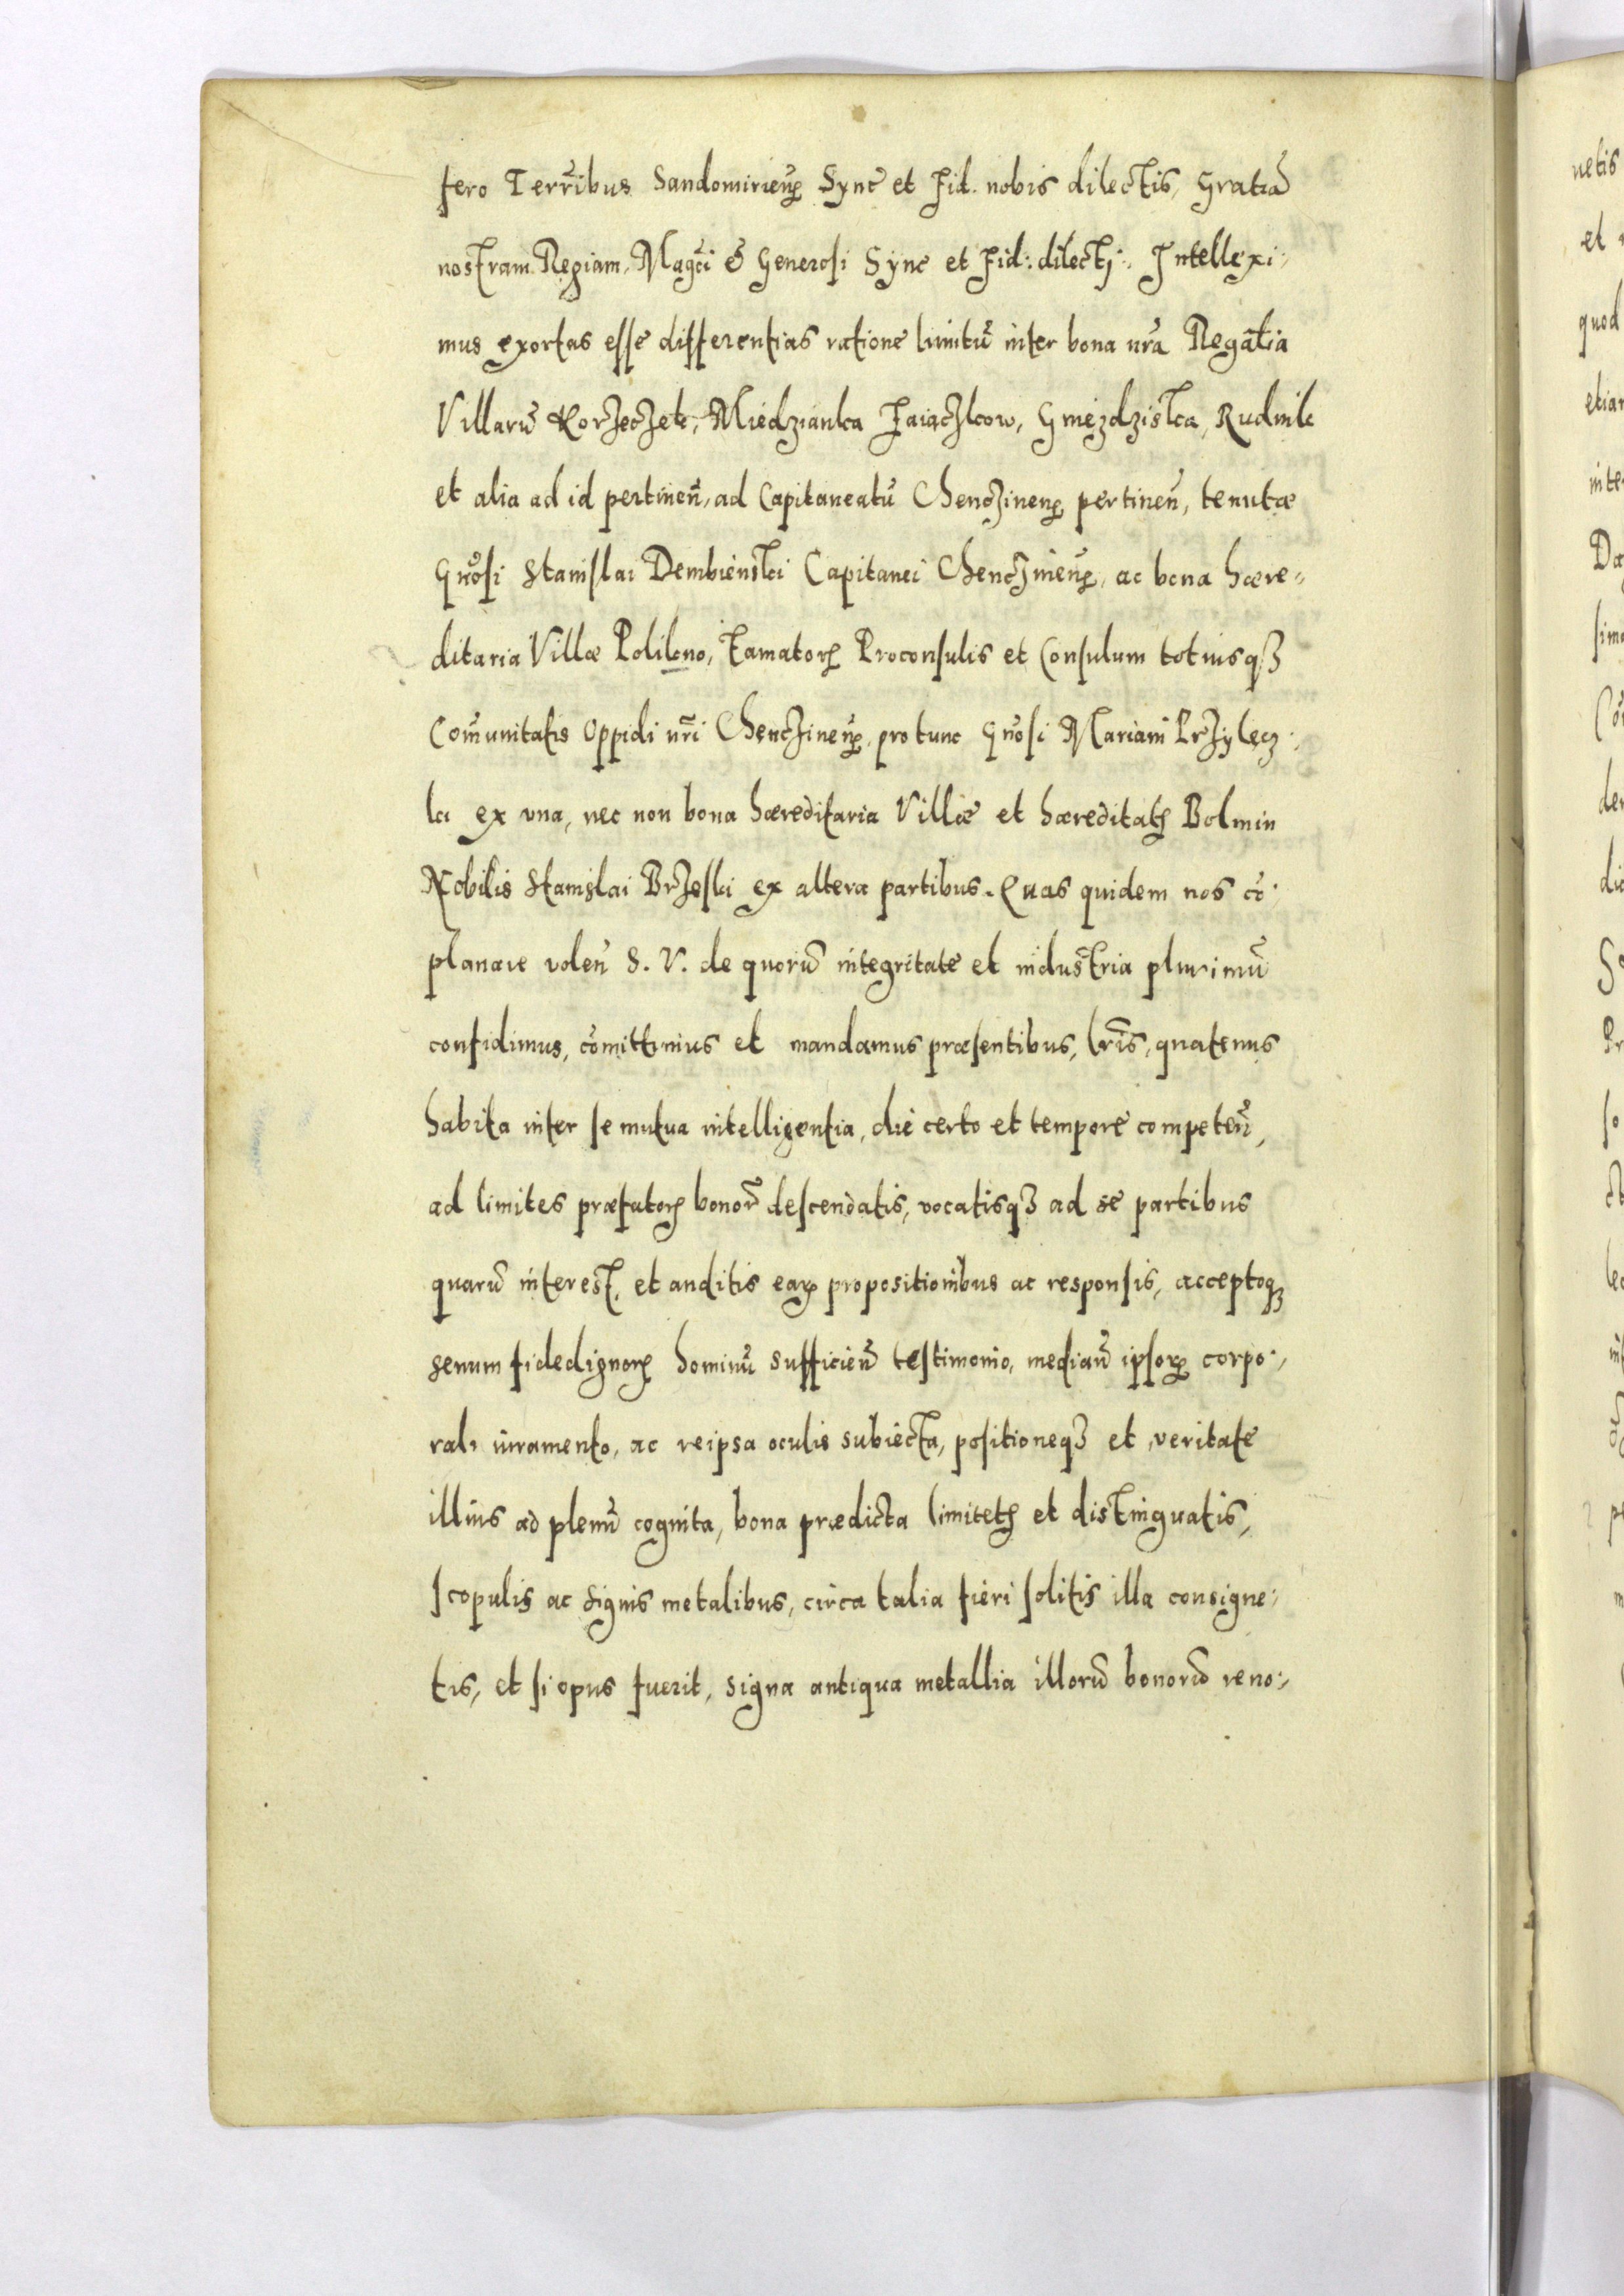 fero Terribus Sandomirien̄ Sync̄ et Fid. nobis dilectis, Gratiā
nostram Regiam, Magc̄i & Generosi Sync et Fid: dilecti: Intellexi:
mus exortas esse differentias ratione limitū inter bona nrā Regalia
Villarū Korzeczek, Miedzianka Zaiączkow, Gniezdziska, Rudnik
et alia ad id pertinen̄, ad Capitaneatū Chenczinen̄ pertinen̄, tenutæ
Gn̄osi Stanislai Dembienski Capitanei Chenczinen̄, ac bona hære-
ditaria Villæ Polikno, Famatoꝝ Proconsulis et Consulum totiusqꝫ
Com̄unitatis Oppidi nr̄i Chenczinen̄, pro tunc Gn̄osi Mariani Przylęcz:
ki ex vna, nec non bona hæreditaria Villæ et hæreditatis Bolmin
Nobilis Stanislai Brzeski ex altera partibus. Quas quidem nos cō:
planare volen̄ S. V. de quorū integritate et industria plurimū
confidimus, cōmittimus et mandamus præsentibus, lr̄is, quatenus
habita inter se mutua intelligentia, die certo et tempore competen̄,
ad limites præfatoꝝ bonor̄ descendatis, vocatisqꝫ ad se partibus
quarū interest, et auditis eaꝝ propositionibus ac responsis, acceptoqꝫ
senum fidedignoꝝ hominū sufficien̄ testimonio, median̄ ipsoꝝ corpo:
rali iuramento, ac reipsa oculis subiecta, positioneqꝫ et veritate
illius ad plenū cognita, bona prædicta limitetis et distinguatis,
scopulis ac signis metalibus, circa talia fieri solitis illa consigne:
tis, et si opus fuerit, signa antiqua metallia illorū bonorū reno: